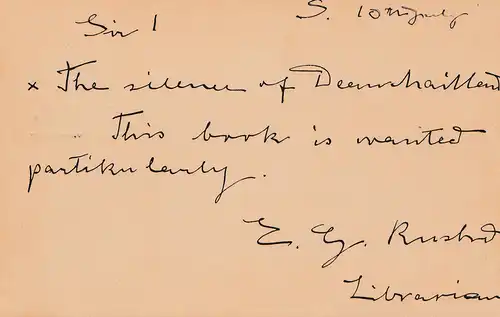 Sir !
S. 10th July
x The silence of Deanshaitland
This book is wanted
partikularly.
E. G.
Librarian